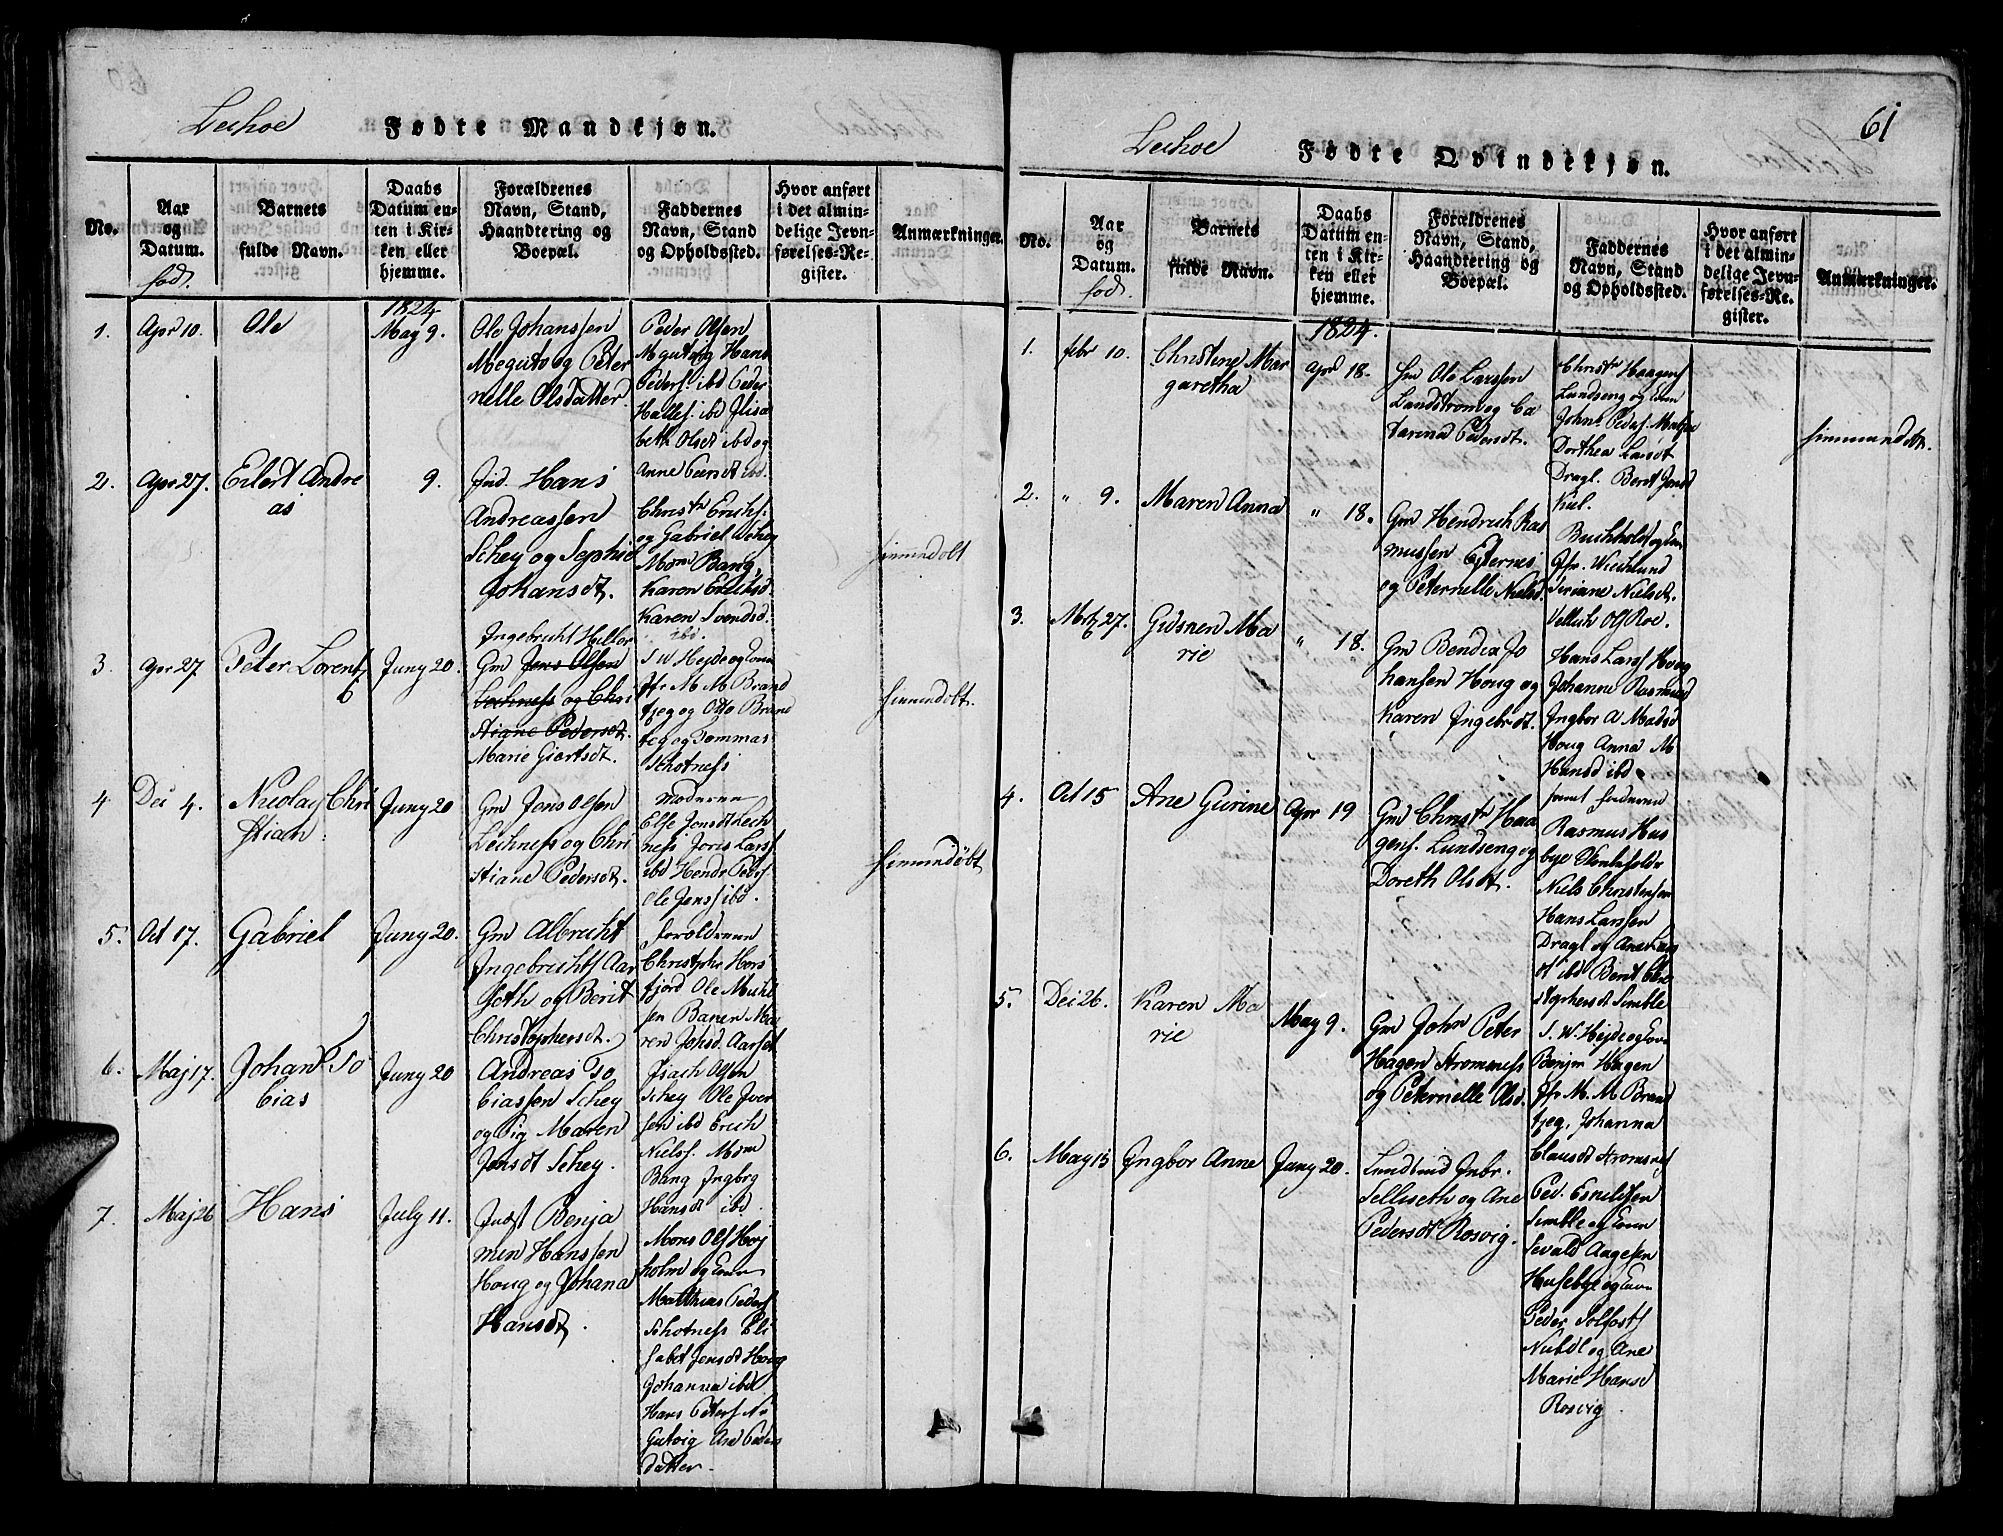 Leehoe
Fødte Mandkjøn.
No.
Aar
og
Datum.
fød.
Barnets
fulde Navn.
Daabs
Datum en-
ten i Kir-
ken eller
hjemme.
Forældrenes
Navn, Stand,
Haandtering og
Boepæl.
Faddernes
Navn, Stand
og Opholdssted.
Hvor anført
i det almin-
delige Jevn-
førelses-Re-
gister.
Anmærkninger.
1824
1.
Apr 10.
Ole
May 9.
Ole Johanssen
Meguto og Peter
nelle Olsdatter.
Peder Olsen
Hans
Peders. ibd Peder
Halles. ibd Elisa
beth Olsdt ibd og
Anne
2.
Apr 27.
Eilert Andre
as
9.
Hans
Andreassen
Schey og Sephie
Johansdt.
Christn Erichs.
og Gabriel
Mom Bang,
Karen Erichsd.
Karen Svendsd.
ibd.
hiemmedøbt
3.
Apr 27
Peter Lorentz
Juny 20.
Ingebricht Heller
Gm Jens Olsen
Lechness og Chri
stiane Pedersdt.
Marie Giertsdt.
S W Hejde og Cona
Jfr M M Brand
tzeg og Otto Brand
tzeg og Tommas
Schotness
hiemmedøbt.
4
Dec 4.
Nicolay Chri
stian
Juny 20
Gm Jens Olsen
Lechness og Chri
stiane Pedersdt.
Moderen
Else Jonsdt Lech
ness Joris Larss
ibd Hendr Peders
Ole Jenss ibd.
hiemmedøbt
5.
Oct 17.
Gabriel
Juny 20.
Gm Albricht
Ingebrichts Aar
seth og Berit
Christophersdt.
foroldrene
Christopher Hors
fjord Ole Michl
sen Banen Ma
ren Johsd. Aarset
6.
Maj 17.
Johan To
bias
Juny 20
Andreas To
biassen Schey
og Pig Maren
Jensdt Schey.
Isach Olsen
Schey Ole Iver
sen ibd Erich
Niels. Mom
Bang Ingbrg
Hansdt ibd.
7.
Maj 26
Hans
July 11.
Inds Benja
min Hanssen
Houg og Johana
Hansdt.
Mons Ols Hoj
holm og Cone
Matthias Peders
Schotness Eli
sabet Jensdt Houg
Johanna ibd
Hans Peters
Gulvig Ane Peders
datter.
61
Leehoe
Fødte Qvindekjøn.
No.
Aar
og
Datum.
fød.
Barnets
fulde Navn.
Daabs
Datum en-
ten i Kir-
ken eller
hjemme.
Forældrenes
Navn, Stand,
Haandtering og
Boepæl.
Faddernes
Navn, Stand
og Opholdssted.
Hvor anført
i det almin-
delige Jevn-
førelses-Re-
gister.
Anmærkninger.
1824.
1.
febr 10.
Christene Mar
garetha
Apr 18.
Gm Ole Larssen
Landstrom og Ca
tarina Pedersdt.
Christn Haagens
Lundseng og
John Peders.
Dorthea Larsdt
Dragl. Berit Jensd
Kiel.
hiemmedøbt.
2.
" 9.
Maren Anna
" 18.
Gm Hendrich Ras
mussen Ejternes
og Peternelle Nielsd.
Buchholdt og
Jfr. Wicklund
Siriane Nielsdt.
3.
Mrtz 27.
Gidsken Ma
rie
" 18.
Gm Bendix Jo
hansen Houg og
Karen Ingebrdt.
Hans Larss Houg
Johanne Rasmusd
Ingbor A Madsd
Houg Anna M
Hansd ibd
4.
Oct 15
Ane Gurine
Apr 19
Gm Christn Haa
gens. Lundseng og
Doreth Olsdt.
Rasmus Hus
bye
Niels Christensen
Hans Larssen
Dragl og Ane Lars
dt ibd Berit Chri
stophersdt Simble
5.
Dec 26.
Karen Ma
rie
May 9.
Gm John Peter
Hagen Stromness
og Peternelle Olsd.
S. W. Hejde og Cone
Benjm Hagen
Jfr M. M Brand
tzeg, Johanna
Clausdt Stromsnes
6.
May 15
Ingbor Anne
Juny 20.
Sellseth og Ane
Pedersdt Rosvig.
Ped. Esnildsen
Simble og Cone
Sevald Aagesen
Husebye og Cone
Peder
og Ane
Marie Hansd
Rosvig.